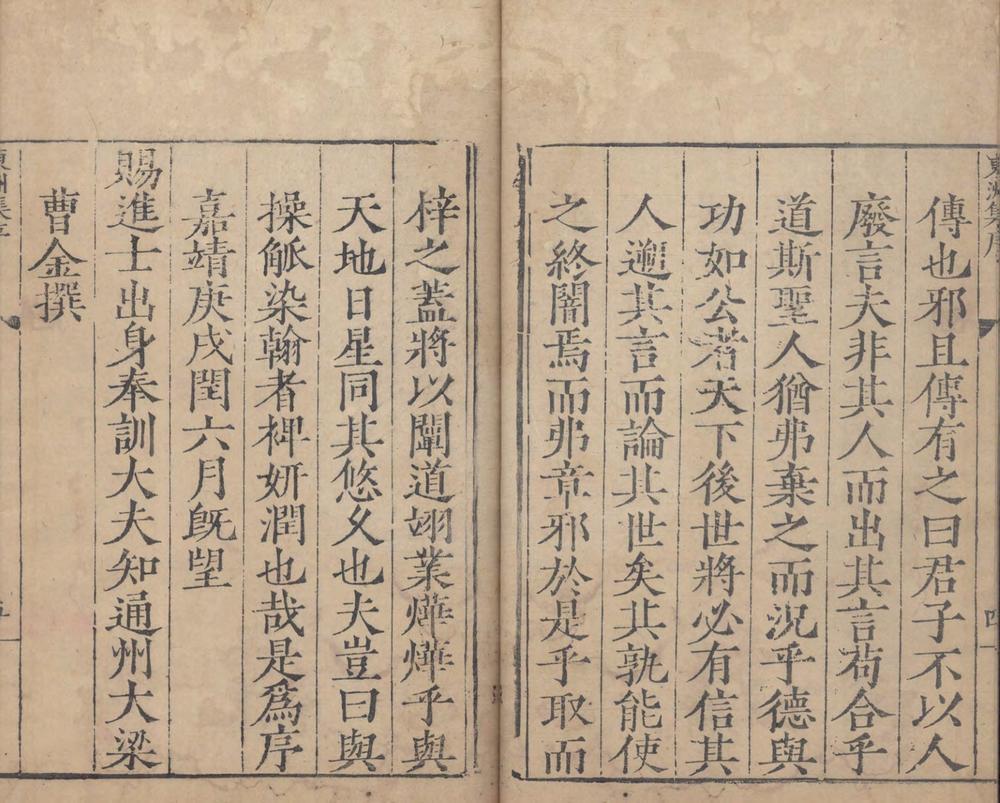 東洲集序
四
傳也邪且傳有之曰君子不以人
廢言夫非其人而出其言茍合乎
道斯聖人猶弗棄之而況乎德與
功如公者天下後世將必有信其
人遡其言而論其世矣其孰能使
之終闇焉而弗章邪於是乎取而
梓之蓋將以闡道翊業燁燁乎與
天地日星同其悠久也夫豈曰與
操觚染翰者裨妍潤也哉是爲序
嘉靖庚戌閏六月旣望
賜進士出身奉訓大夫知通州大梁
曹金撰
東洲集序
五